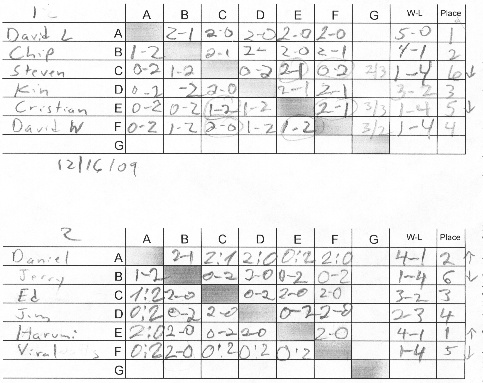 A B C D E F G W-L Place
David L A 2-1 2-0 2-0 2-0 2-0 5-0 1
Chip B 1-2 2-1 2- 2-0 2-1 4-1 2
Steven C 0-2 1-2 0-2 2-1 0-2 2/3 1-4 6 ↓
Kin D 0-2 -2 2-0 2-1 2-1 3-2 3
Cristian E 0-2 0-2 1-2 1-2 2-1 3/3 1-4 5 ↓
David W F 0-2 1-2 2-0 1-2 1-2 3/2 1-4 4
G
12/16/09
2
A B C D E F G W-L Place
Daniel A 2-1 2:1 2:0 0:2 2:0 4-1 2 ↑
Jerry B 1-2 0-2 2-0 0-2 0-2 1-4 6 ↓
Ed C 1:2 2-0 0-2 2-0 2-0 3-2 3
Jim D 0:2 0-2 2-0 0-2 2-0 2-3 4
Harumi E 2:0 2-0 0-2 2-0 2-0 4-1 1 ↑
Viral F 0:2 2-0 0:2 0:2 0:2 1-4 5 ↓
G